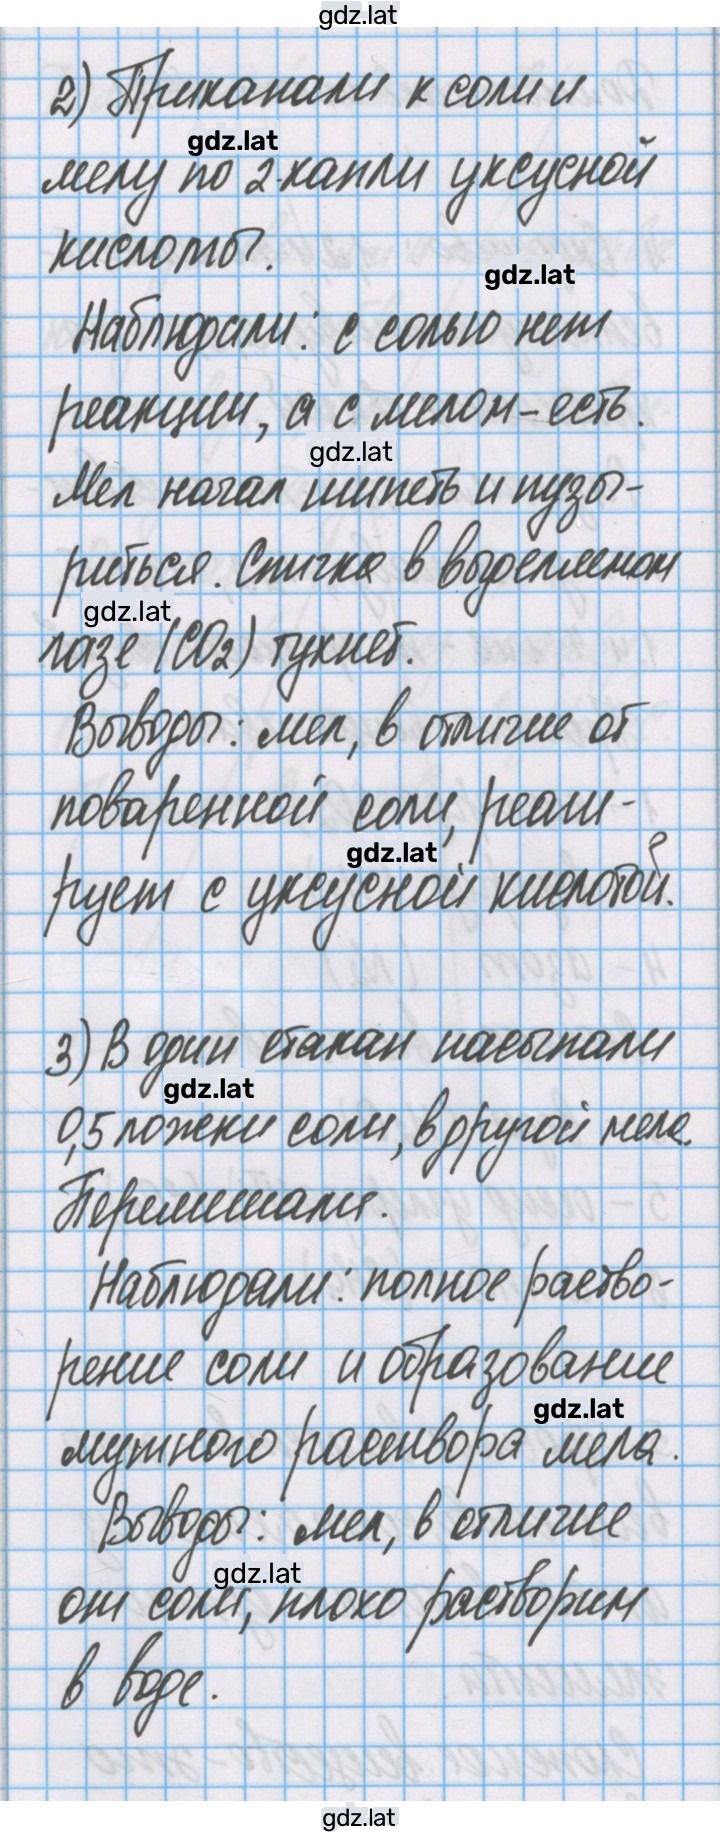 gdz.lat
2) Прикапали к соли и
gdz.lat
мелу по 2 капли уксусной
кислоты.
gdz.lat
Наблюдали: с солью нет
реакции, а с мелом - есть.
gdz.lat
Мел начал шипеть и пузы-
риться. Спичка в выделяемом
gdz.lat
газе (CO2) тухнет.
Выводы: мел, в отличие от
поваренной соли, реаги-
gdz.lat
рует с уксусной кислотой.
3) В один стакан насыпали
gdz.lat
0,5 ложки соли, в другой мела.
Перемешали.
Наблюдали: полное раство-
рение соли и образование
gdz.lat
мутного раствора мела.
Выводы: мел, в отличие
gdz.lat
от соли, плохо растворим
в воде.
gdz.lat